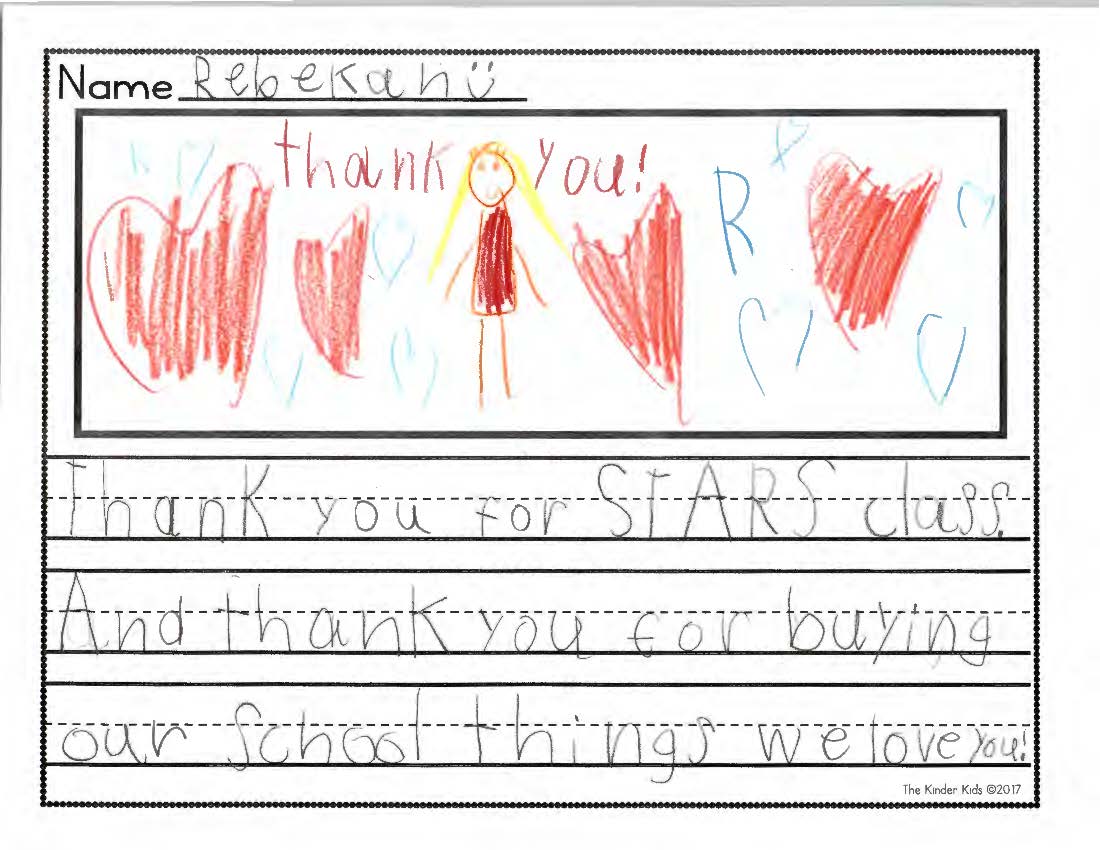 Name Rebekah
thank you!
R
Thank you for STARS class.
And thank you for buying
our school things we love you!
The Kinder Kids ©2017